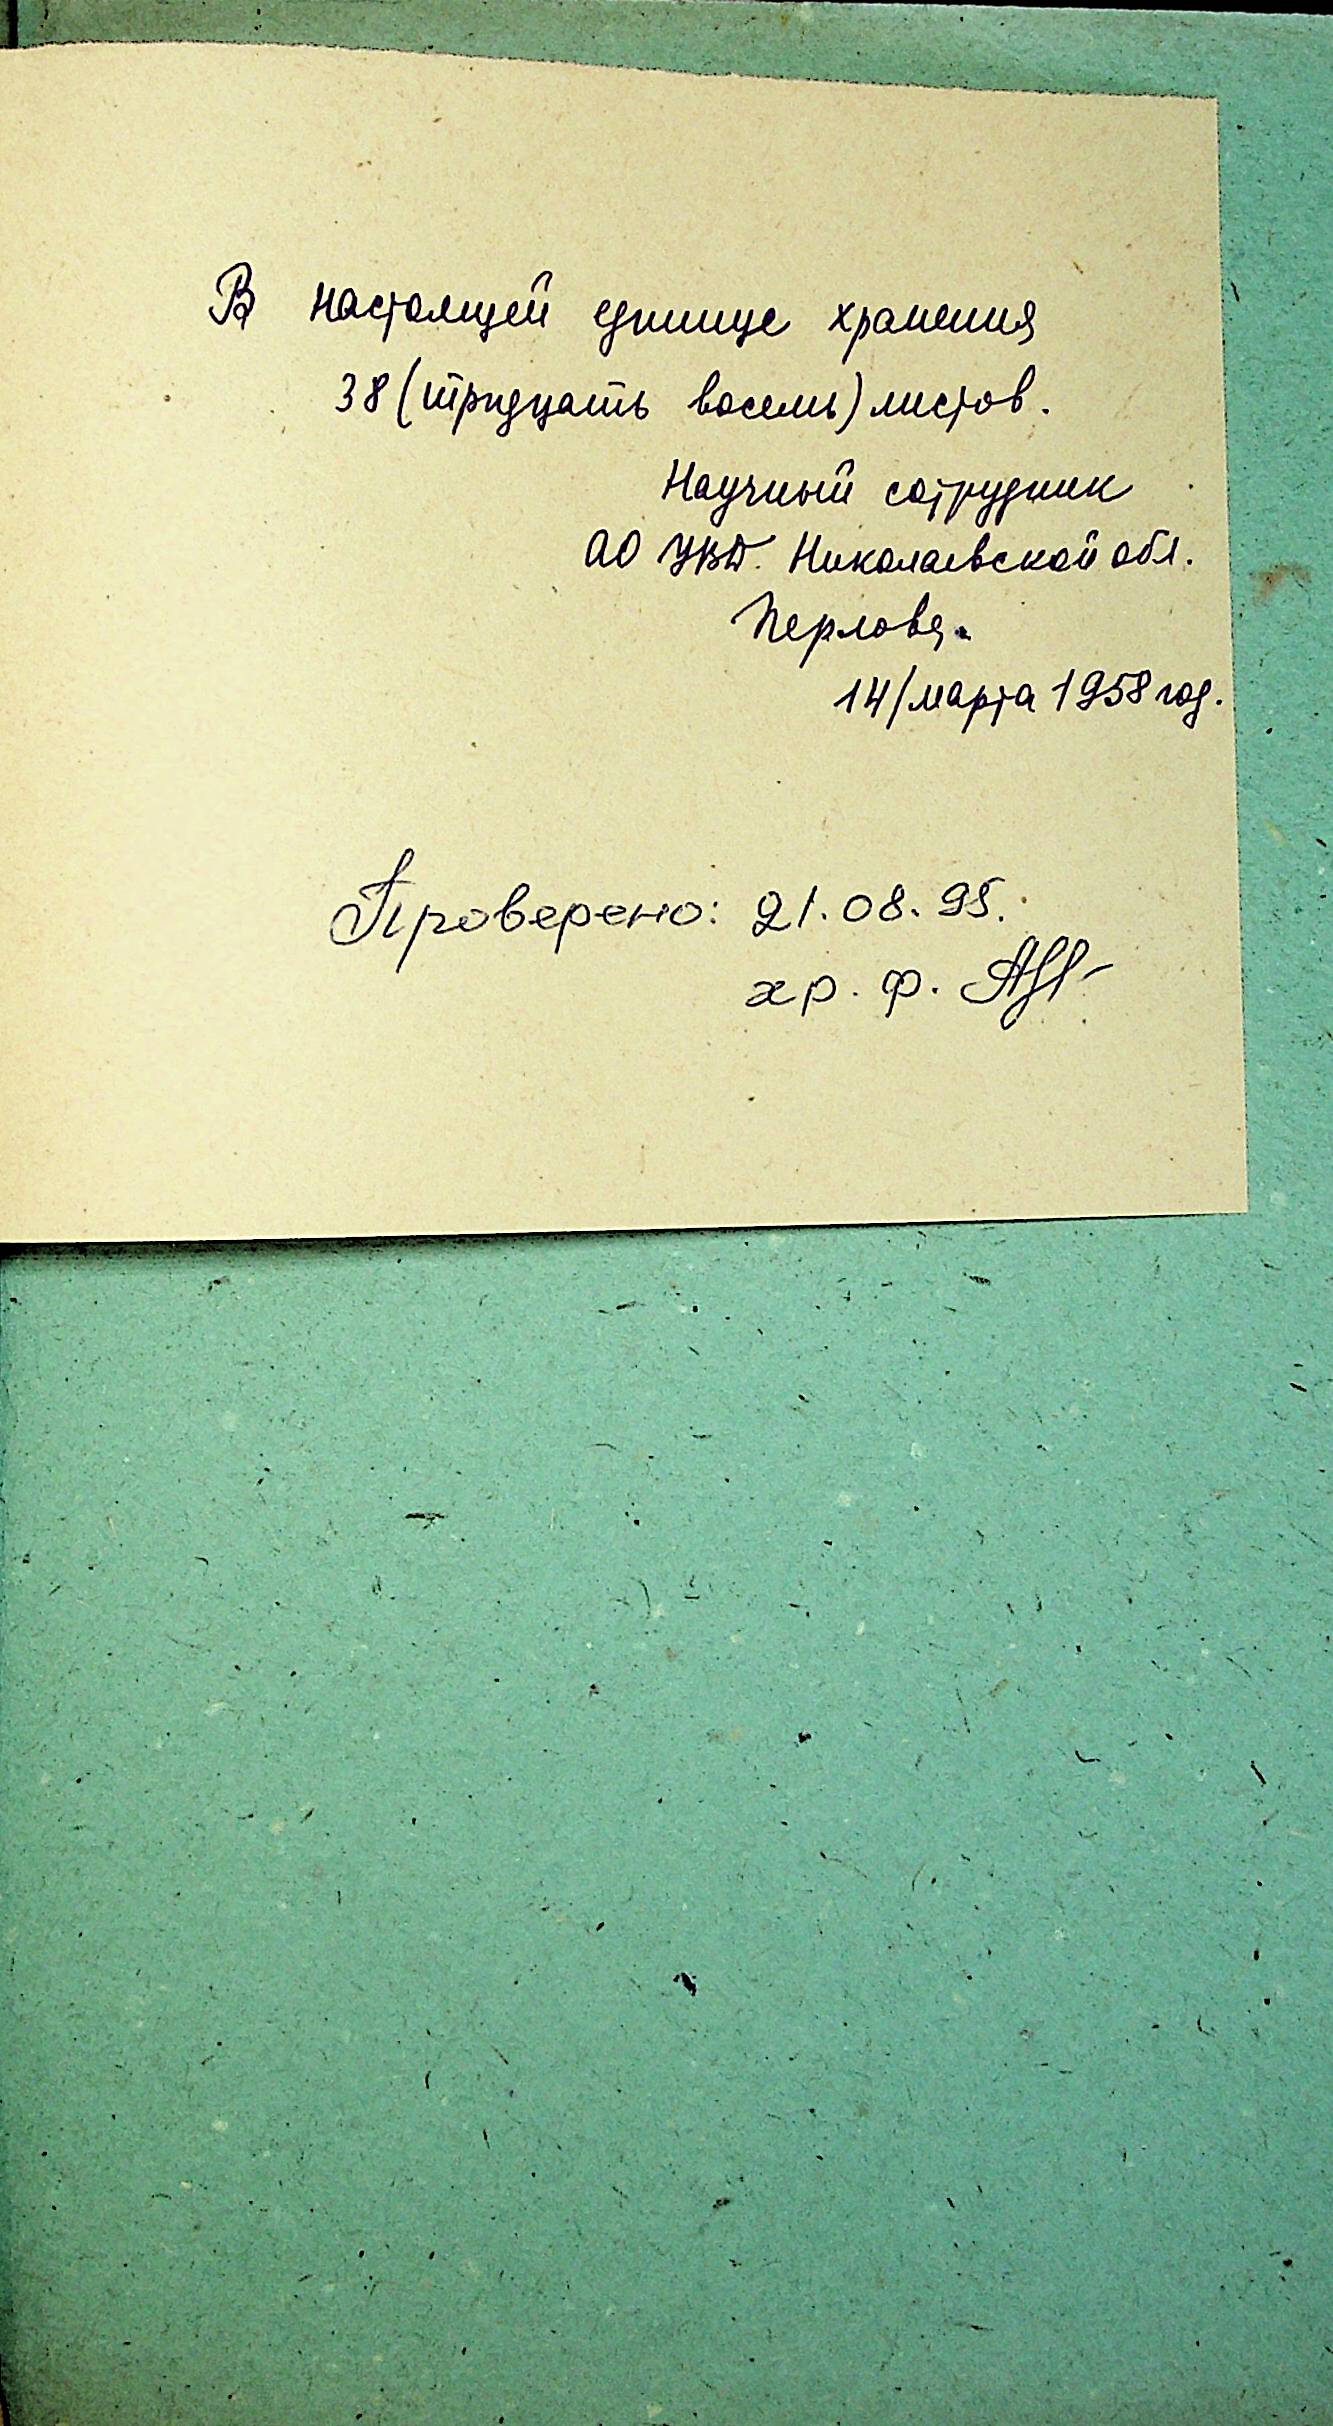 В настоящей единице хранения
38 (тридцать восемь) листов.
Научный сотрудник
АО УВД. Николаевской обл.
Перлова.
14/марта 1958 год.
Проверено: 21.08.95.
хр. ф.